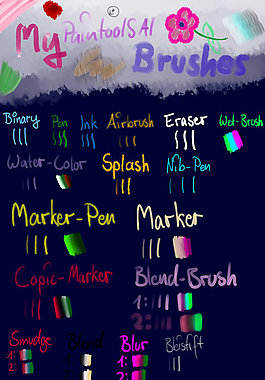 My PaintoolSAI
Brushes
Binary Pen Ink Airbrush Eraser Wet-Brush
Water-Color Splash Nib-Pen
Marker-Pen Marker
Copic-Marker Blend-Brush
1:
2:
Smudge Blend Blur Bleistift
1: 1:
2: 2: